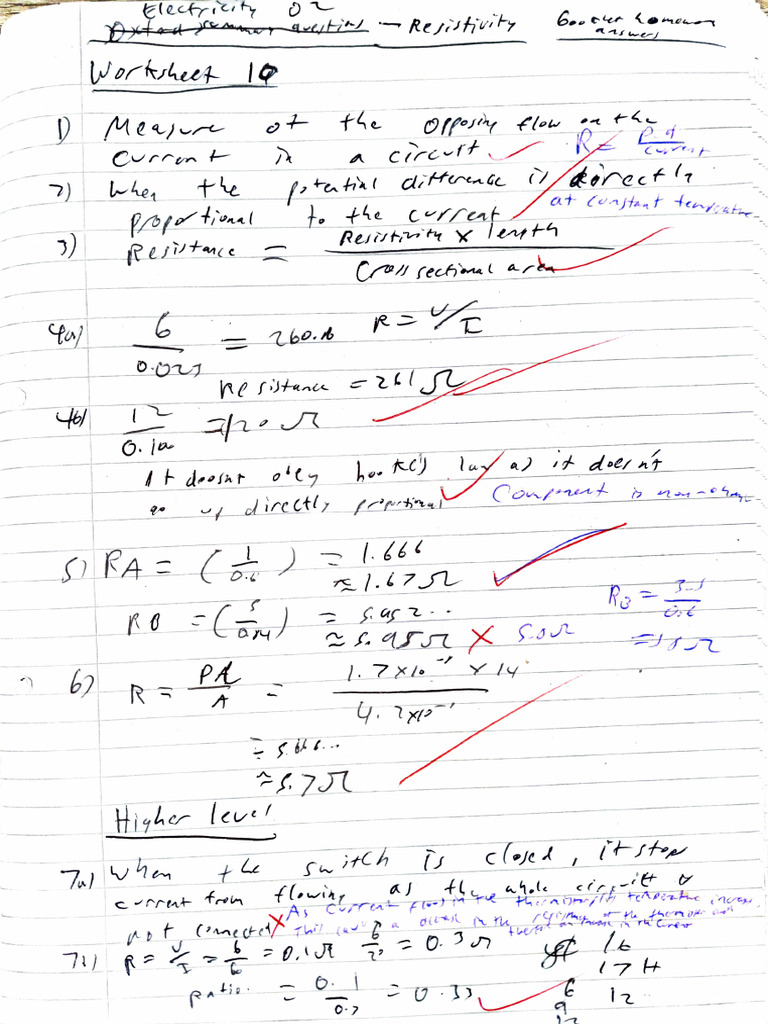 Electricity 02
Oxford summary questions — Resistivity
homework
answers
Worksheet 10
1) Measure of the opposing flow on the
current in a circuit
R = p.d / current
2) When the potential difference is directly
proportional to the current
at constant temperature
3) Resistance = Resistivity x length / Cross sectional area
4a) 6 / 0.023 = 260.86 R = V/I
Resistance = 261 Ω
4b) 12 / 0.10 = 120 Ω
It doesnt obey hooke's law as it doesn't
go up directly proportional
Component is non-ohmic
5) RA = (1/0.6) = 1.666
≈ 1.67 Ω
RB = (5/0.84) = 5.952...
≈ 5.95 Ω 5.0 Ω
6) R = PL/A = 1.7x10 x 14 / 4.2x10
= 5.666...
≈ 5.7 Ω
Higher level
7a) When the switch is closed, it stop
current from flowing as the whole circuit
not connected
As current flows in the thermistor its temperature increases
This a in the of the thermistor
7b) R = V/I = 6/6 = 0.1 Ω 6/20 = 0.3 Ω
ratio = 0.1 / 0.3 = 0.33
16
17 H
6 12
9
12